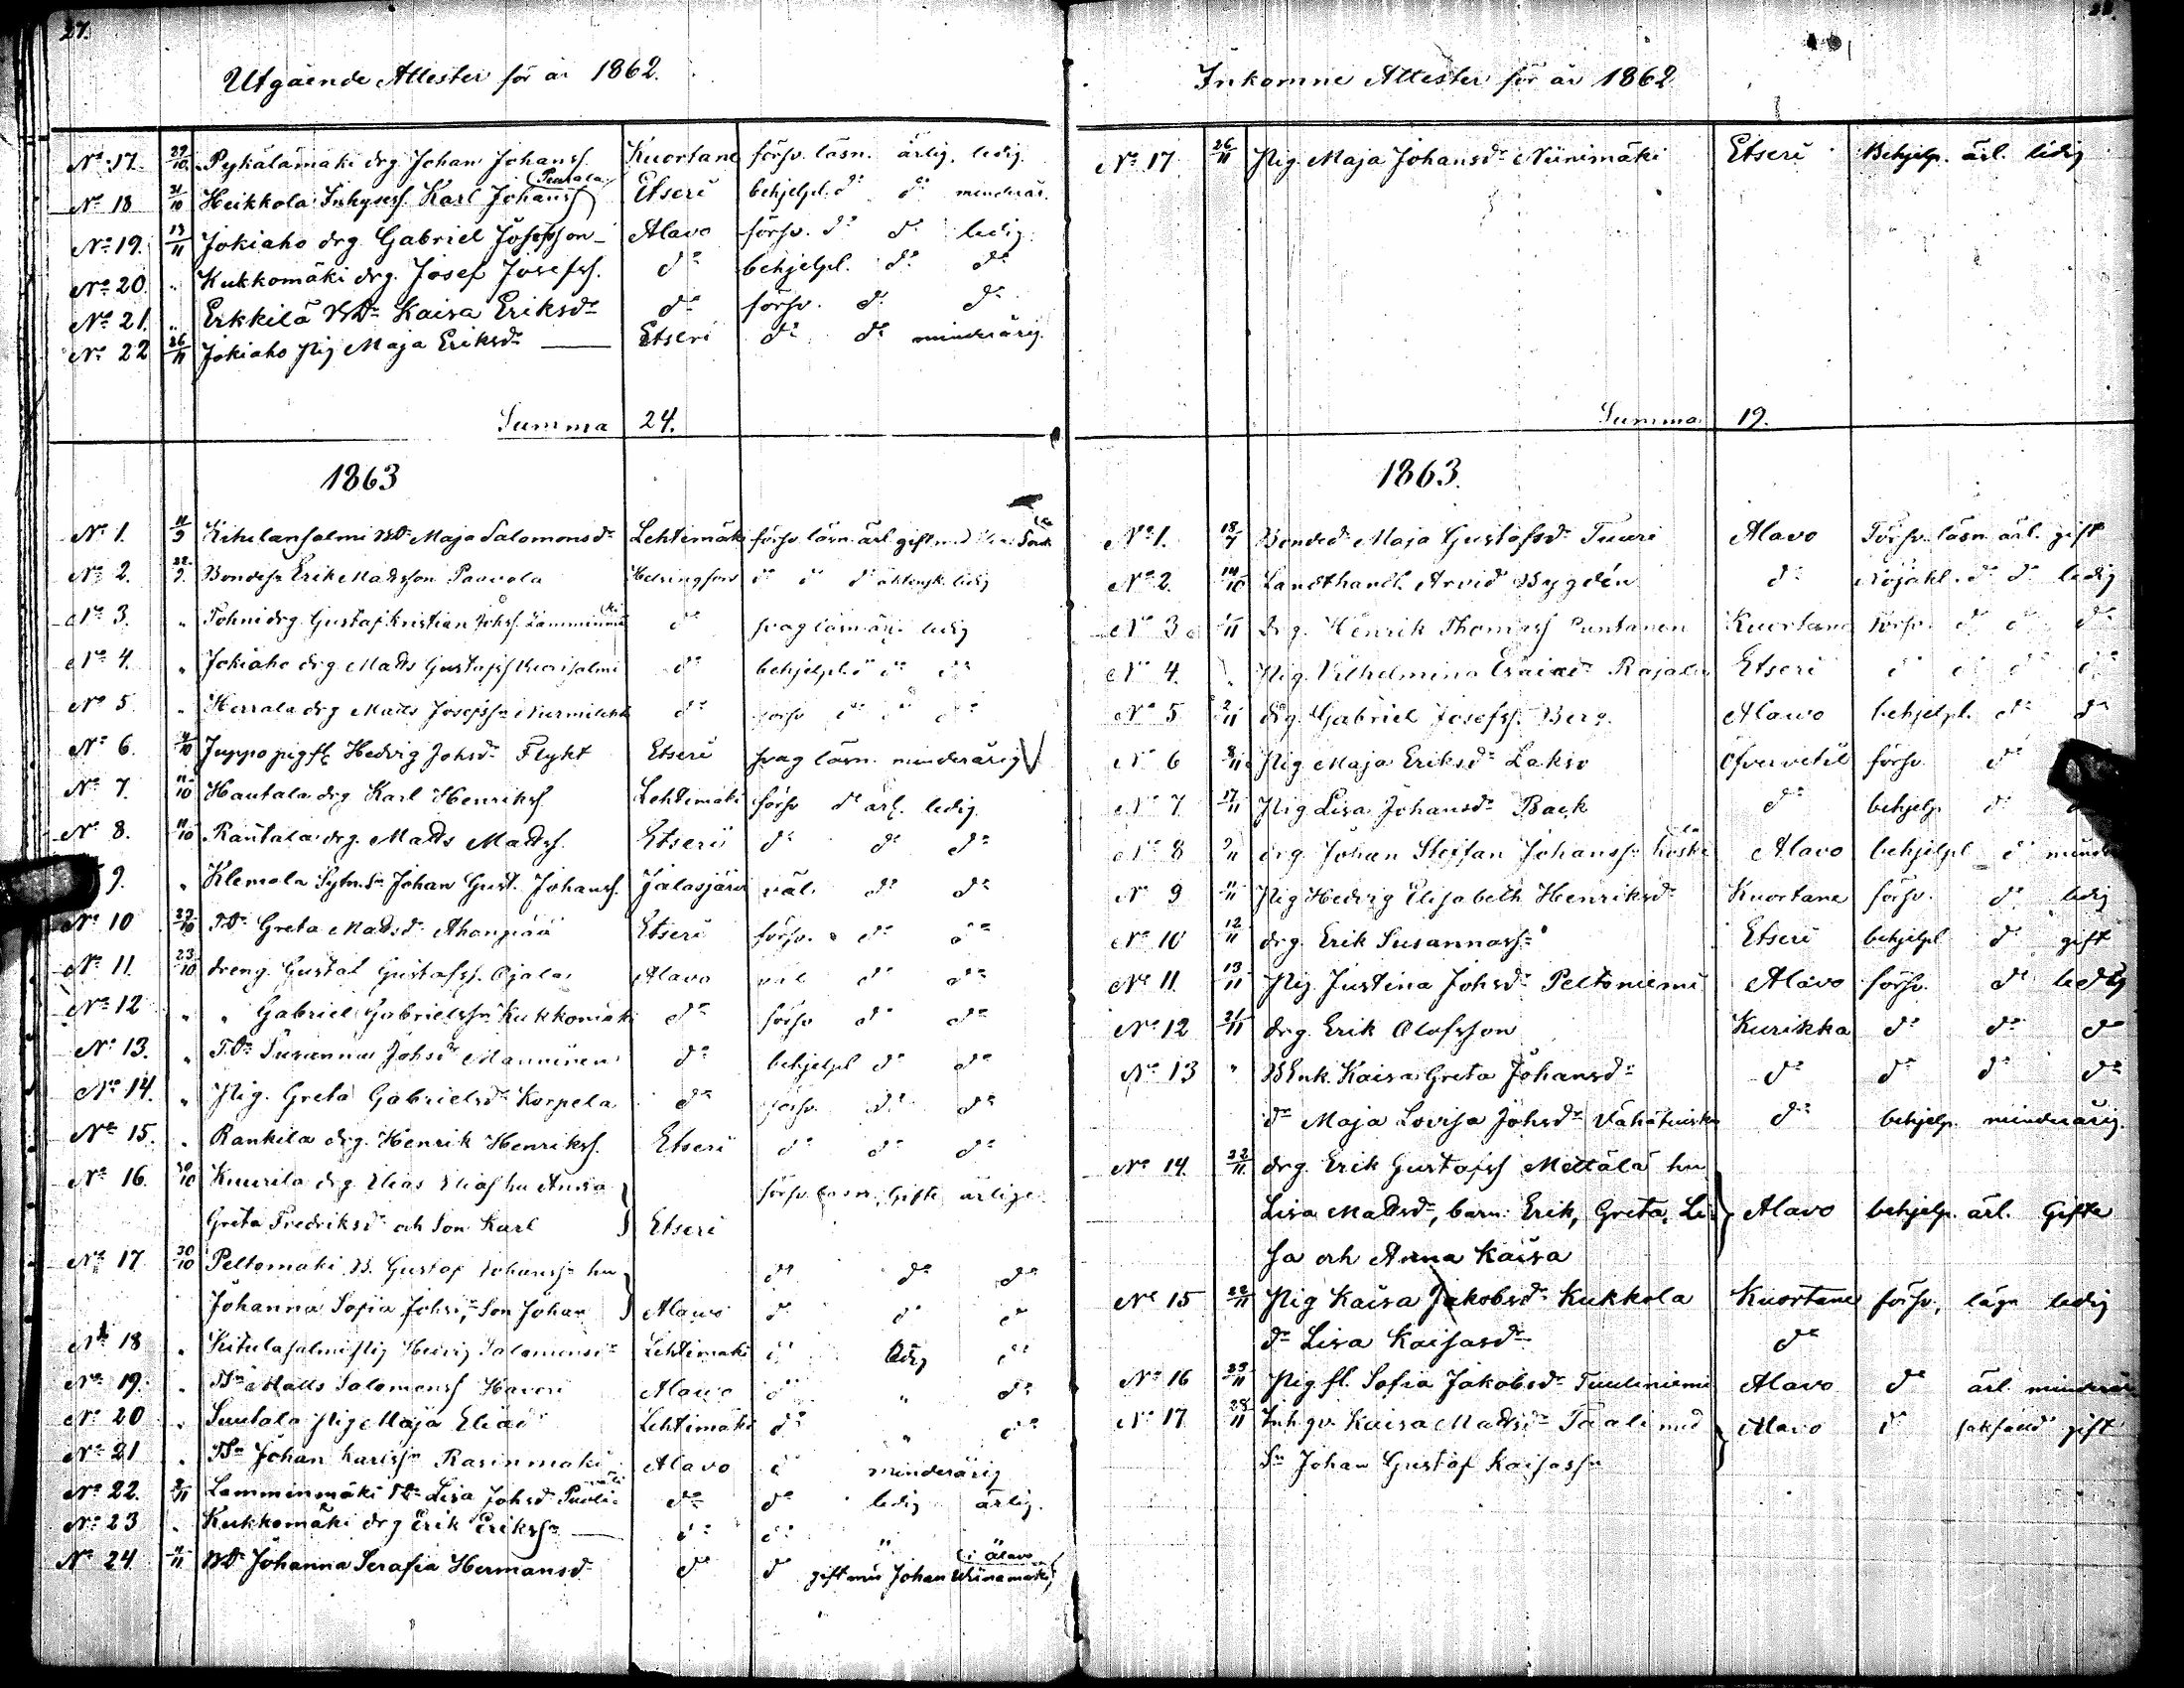 27.
Utgående Attester för år 1862.
No 17. 29/10 Pykälämäki drg Johan Johanss. Kuortane försv. läsn. ärlig. ledig.
No 18 31/10 Heikkola Inhyses. Karl Johanss Etseri behjelpl. do do minderår.
No 19. 13/11 Jokiaho drg. Gabriel Josefsson Alavo försv. do do ledig.
No 20. " Kukkomäki drg. Josef Josefss. do behjelpl. do do
No 21. " Erkkilä BDr Kaisa Eriksdr do försv. do do
No 22 26/11 Jokiaho Pig Maja Eriksdr Etseri do do minderårig.
Summa 24.
1863
No 1. 11/9 BDr Maja Salomonsdr Lehtimäki försv. läsn. ärl. gift
No 2. 22/9 Bondess Erik Madsson Paavola Helsingfors do do do ledig
No 3. " drg. Gustaf Kristian Johss. do svag läsn. ärl. ledig
No 4. " Jokiaho drg Matts Gustafss do behjelpl. do do do
No 5 " Herrala drg Matts Josefssn do försv do do do
No 6. 9/10 Juppo pigfl. Hedvig Johsdr Flykt Etseri svag läsn. minderårig
No 7. 11/10 Hautala drg Karl Henrikss. Lehtimäki försv do ärl. ledig.
No 8. 11/10 Rantala drg. Matts Mattss. Etseri do do do
9. " Klemola Sytn.Sn Johan Gust. Johanss. Jalasjärvi väl. do do
No 10 22/10 TDr Greta Madsdr Ahonpää Etseri försv. do do
No 11. 23/10 dreng. Gustaf Gustafss. Ojala Alavo väl do do
No 12 " " Gabriel Gabrielssn Kukkomäki do försv do do
No 13. " TDr Susanna Johsdr Manninen do behjelpl do do
No 14. " Pig. Greta Gabrielsdr Korpela do försv. do do
No 15. " Rankila drg. Henrik Henrikss. Etseri do do do
No 16. 30/10 Knuuila drg Elias Eliass hu Anna försv. läsn. Gifte ärlige
Greta Fredriksdr och Son Karl Etseri
No 17 30/10 Peltomäki B. Gustaf Johanssn hu do do do
Johanna Sofia Johsdr, Son Johan Alavo do do do
No 18 " Pig Hedvig Salomonsdr Lehtimäki do ledig do
No 19. " BSn Matts Salomonss Haveri Alavo do " do
No 20 " Suutala Pig Maja Eliasdr Lehtimäki do " do
No 21 " BSn Johan Karlssn Rasinmäki Alavo do minderårig
No 22. 2/11 Lamminmäki BDr Lisa Johsdr do do ledig ärlig.
No 23 " Kukkomäki drg Erik Erikssn do do "
No 24 11/11 BDr Johanna Serafia Hermansdr do do gift med Johan (i Alavo)
28.
Inkomne Attester för år 1862
No 17 26/11 Pig. Maja Johansdr Niinimäki Etseri Behjelp. ärl. ledig
Summa 19.
1863.
No 1. 18/7 Bonded. Maja Gustafsdr Tuuri Alavo Försv. läsn. ärl. gift
No 2. 14/10 Landthandl. Arvid Bygdén do Nöjakl. do do ledig
No 3 drg. Henrik Thomass Puntanen Kuortane försv. do do do
No 4. " Pig. Vilhelmina Esaiaedr Rajala Etseri do do do do
No 5 2/11 drg. Gabriel Josefss. Berg. Alavo behjelpl. do do
No 6 8/11 Pig Maja Eriksdr Lakso Öfvervetil försv. do
No 7 17/11 Pig Lisa Johansdr Back do behjelp. do
No 8 9/11 drg. Johan Steffan Johanssn Alavo behjelpl do
No 9 11/11 Pig Hedvig Elisabeth Henriksdr Kuortane försv. do ledig
No 10 12/11 drg. Erik Susannassn Etseri behjelpl do gift
No 11. 13/11 Pig. Justina Johsdr Peltoniemi Alavo försv. do ledig
No 12 21/11 drg. Erik Olofsson Kurikka do do do
No 13 " BEnk. Kaisa Greta Johansdr do do do do
dr Maja Lovisa Johsdr do behjelp. minderårig.
No 14. 22/11 drg. Erik Gustafss Mettälä hu
Lisa Madsdr, barn: Erik, Greta, Li- Alavo behjelp. ärl. Gifte
sa och Anna Kaisa
No 15 22/11 Pig Kaisa Jakobsdr Kukkola Kuortane försv, läge ledig
dr Lisa Kaisasdr do
No 16 25/11 Pig fl. Sofia Jakobsdr Tuuliniemi Alavo do ärl. minderår
No 17 28/11 Inh.qv. Kaisa Madsdr Taali med Alavo do gift
Sn Johan Gustaf Kaisassn